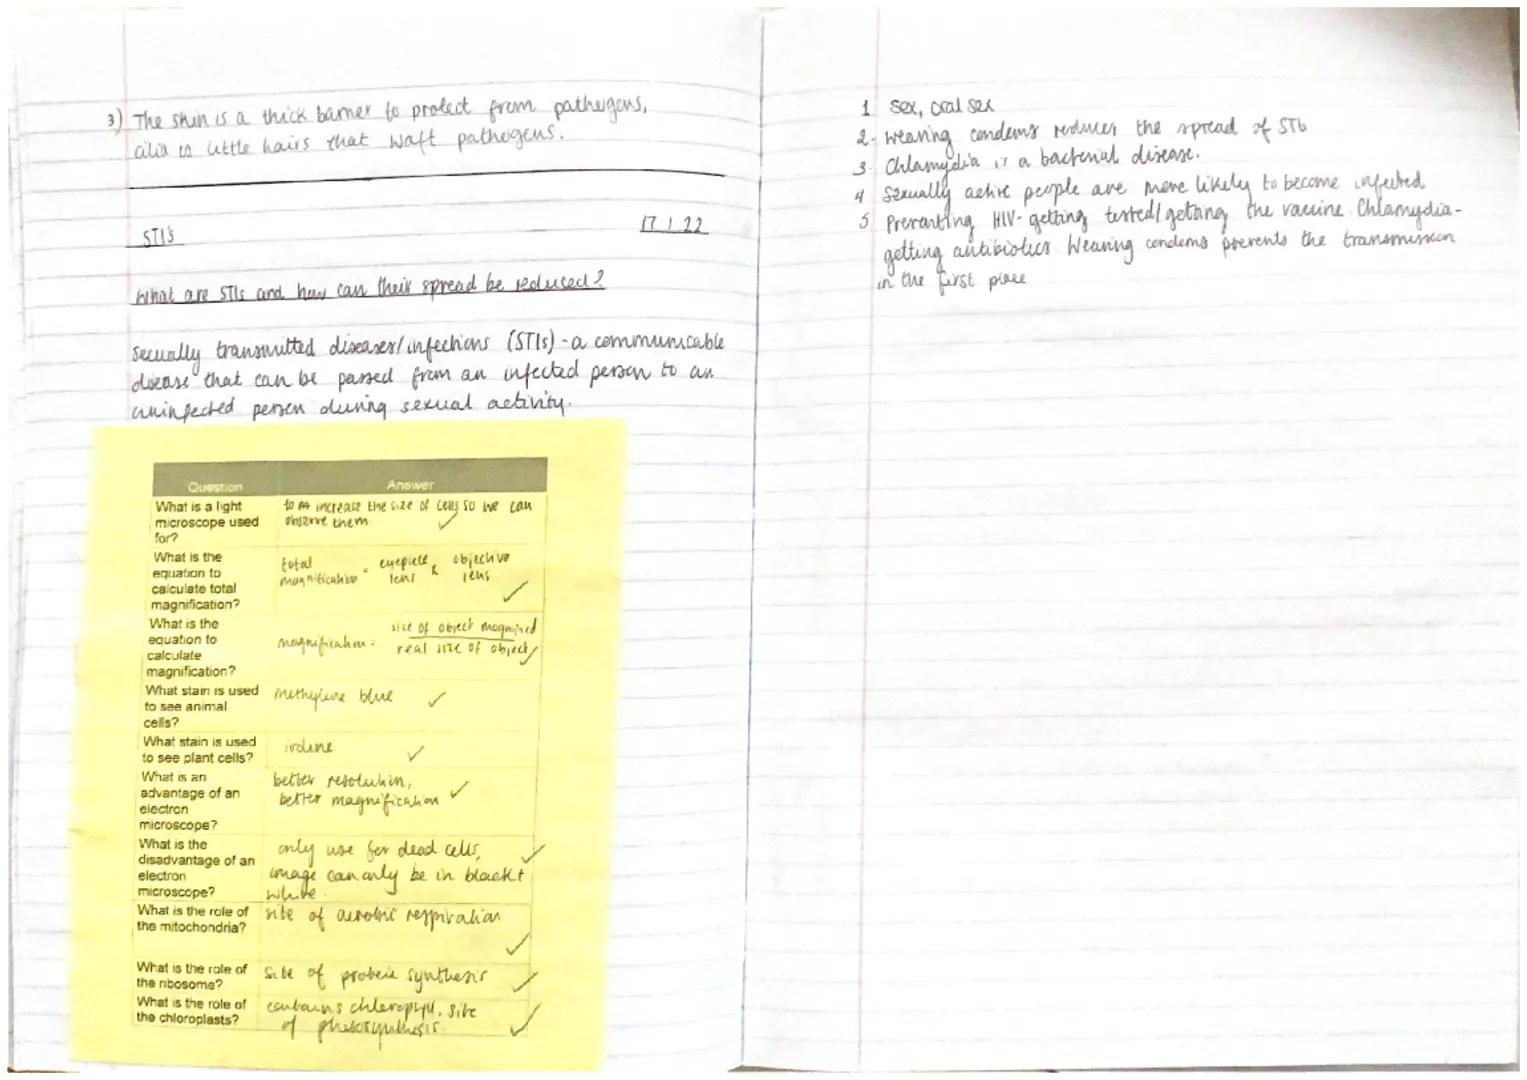 3) The skin is a thick barrier to protect from pathogens,
cilia is little hairs that waft pathogens.
STI's
17.1.22
What are STIs and how can their spread be reduced?
Sexually transmitted diseases/infections (STIs) - a communicable
disease that can be passed from an infected person to an
uninfected person during sexual activity.
Question Answer
What is a light
microscope used
for?
to increase the size of cells so we can
observe them.
What is the
equation to
calculate total
magnification?
total magnification = eyepiece lens x objective lens
What is the
equation to
calculate
magnification?
magnification = size of object magnified
real size of object
What stain is used
to see animal
cells?
methylene blue
What stain is used
to see plant cells?
iodine
What is an
advantage of an
electron
microscope?
better resolution,
better magnification
What is the
disadvantage of an
electron
microscope?
only use for dead cells,
image can only be in black +
white.
What is the role of
the mitochondria?
site of aerobic respiration
What is the role of
the ribosome?
Site of protein synthesis
What is the role of
the chloroplasts?
contains chlorophyll. Site
of photosynthesis.
1 Sex, oral sex
2- Wearing condoms reduces the spread of STIs
3. Chlamydia is a bacterial disease.
4 Sexually active people are more likely to become infected
5 Preventing HIV- getting tested/getting the vaccine. Chlamydia-
getting antibiotics. Wearing condoms prevents the transmission
in the first place